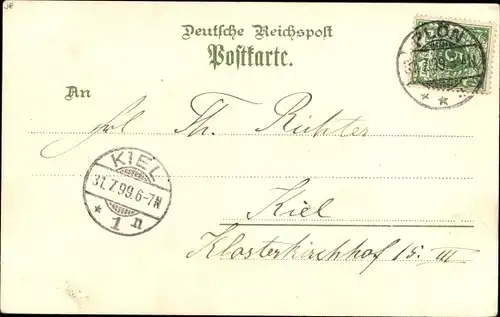 Deutsche Reichspost
Postkarte.
PLÖN
31.7.99.
* *
An
Frl. Th. Richter
KIEL
31.7.99.6-7N
* 1 n
Kiel
Klosterkirchhof 15. III